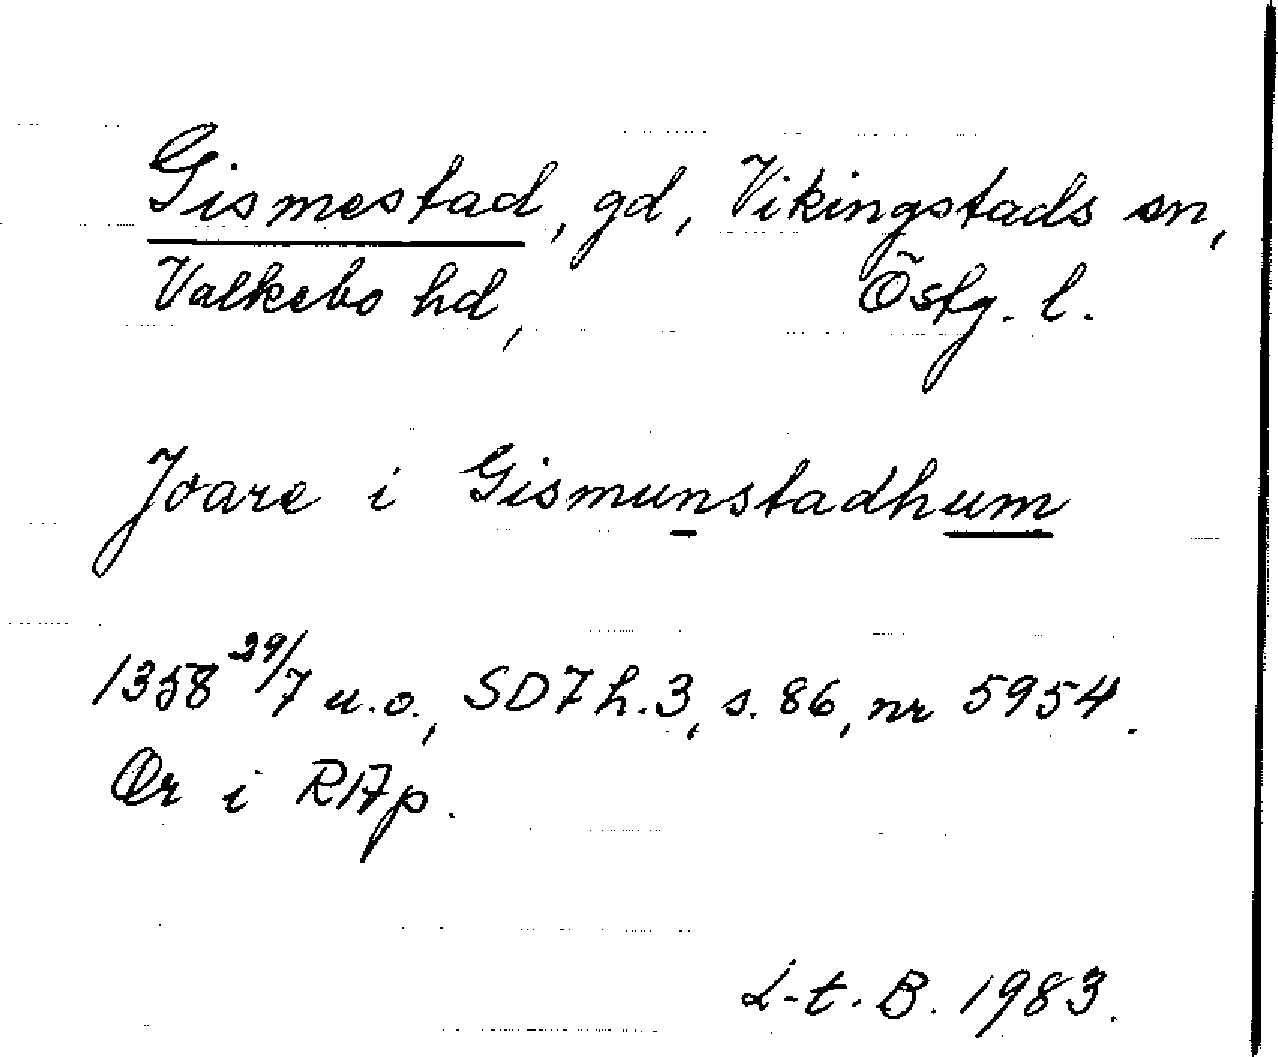 Gismestad, gd, Vikingstads sn,
Valkebo hd, Östg. l.
Joare i Gismunstadhum
1358 29/7 u.o., SD7 h.3, s. 86, nr 5954.
Or i RAp.
L-t. B. 1983.